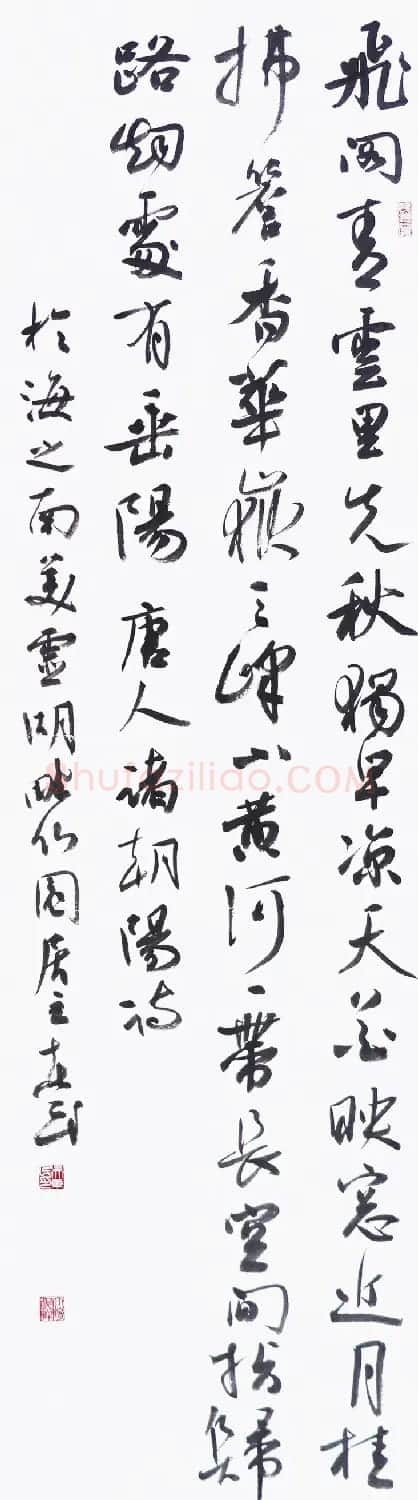 飛閣青雲里先秋獨早凉天花映窓近月桂
拂簷香華嶽三峰小黄河一帶長空間指歸
路烟處有垂陽 唐人諸朝陽詩
於海之南美靈湖畔竹園居主
Shufaziliao.COM